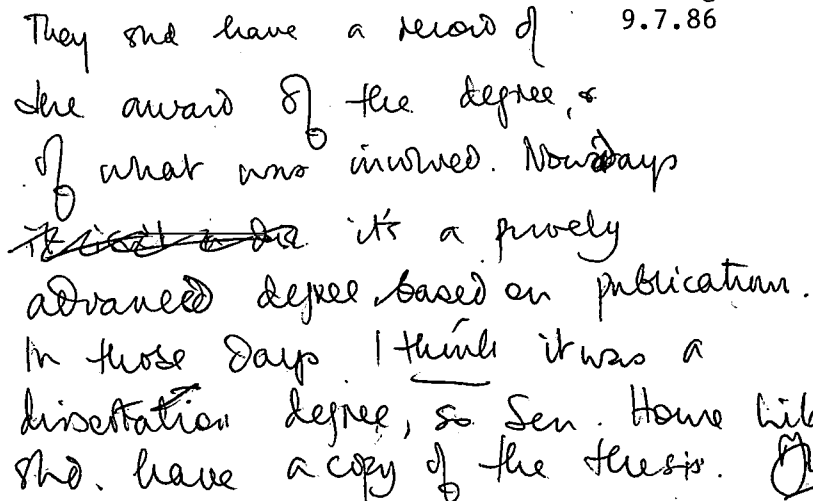 They shd have a record of 9.7.86
the award of the degree, &
of what was involved. Nowadays
it's a purely
advanced degree based on publication.
In those days I think it was a
dissertation degree, so Sen. House
shd. have a copy of the thesis.